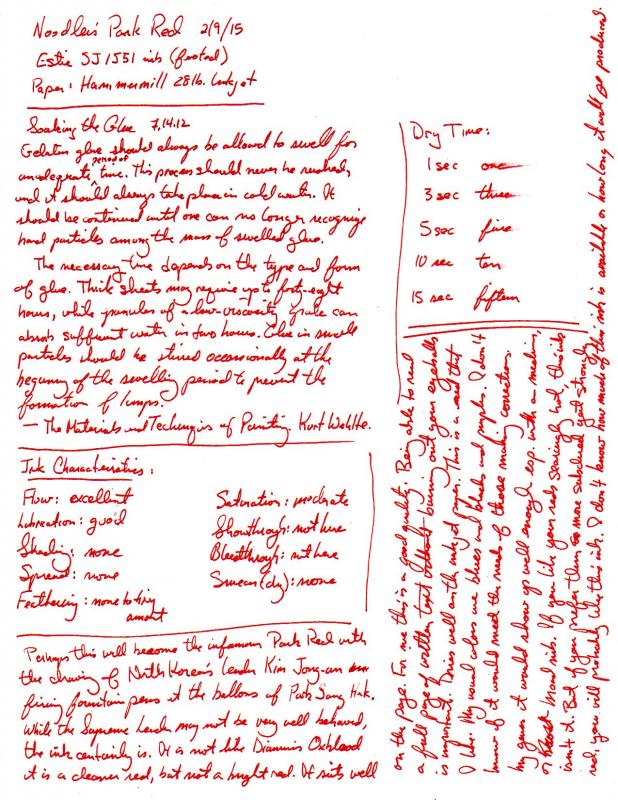 Noodler's Park Red 2/9/15
Estie SJ 1551 nib (frosted)
Paper: Hammermill 28lb. Inkjet
Soaking the Glue 7.14.12
Gelatin glue should always be allowed to swell for
an adequate period of time. This process should never be rushed,
and it should always take place in cold water. It
should be continued until one can no longer recognize
hard particles among the mass of swelled glue.
The necessary time depends on the type and form
of glue. Thick sheets may require up to forty-eight
hours, while granules of a low-viscosity grade can
absorb sufficient water in two hours. Glue in small
particles should be stirred occasionally at the
beginning of the swelling period to prevent the
formation of lumps.
— The Materials and Techniques of Painting. Kurt Wehlte.
Dry Time:
1 sec one
3 sec three
5 sec five
10 sec ten
15 sec fifteen
Ink Characteristics:
Flow: excellent
Lubrication: good
Shading: none
Spread: none
Feathering: none to tiny
amount
Saturation: moderate
Showthrough: not here
Bleedthrough: not here
Smears (dry): none
Perhaps this will become the infamous Park Red with
the drawing of North Korea's leader Kim Jong-un
firing fountain pens at the balloons of Park Sang Hak.
While the Supreme Leader may not be very well behaved,
the ink certainly is. It is not like Diamine Oxblood
it is a cleaner red, but not a bright red. It sits well
on the page. For me this is a good quality. Being able to read
a full page of written text without burning out your eyeballs
is important. Dries well on the inkjet paper. This is a red that
I like. My usual colors are blues and blacks and purples. I don't
know if it would meet the needs of those making corrections.
My guess it would show up well enough esp. with a medium,
or broad nib. If you like your reds searing hot, this ink
isn't it. But if you prefer them more subdued yet strongly
red, you will probably like this ink. I don't know how much of this ink is available or how long it will be produced.